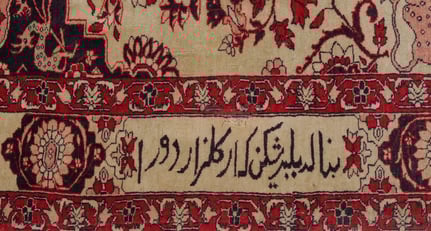 بنالد بلبر شکن که ار کلزار دور ا